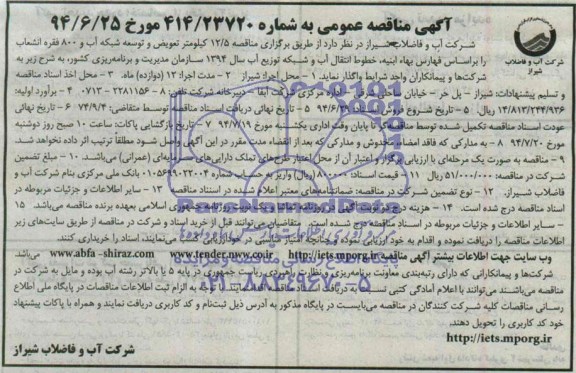 آگهی مناقصه عمومی به شماره ۴۱۴/۲۳۷۲۰ مورخ ۹۴/۶/۲۵
شرکت آب و فاضلاب شیراز
شرکت آب و فاضلاب شیراز در نظر دارد از طریق برگزاری مناقصه ۱۲/۵ کیلومتر تعویض و توسعه شبکه آب و ۸۰۰ فقره انشعاب
را براساس فهارس بهاء ابنیه، خطوط انتقال آب و شبکه توزیع آب سال ۱۳۹۴ سازمان مدیریت و برنامه‌ریزی کشور، به شرح زیر به
شرکت‌ها و پیمانکاران واجد شرایط واگذار نماید. ۱ - محل اجرا: شیراز ۲ - مدت اجرا: ۱۲ (دوازده) ماه. ۳ - محل اخذ اسناد مناقصه
و تسلیم پیشنهادات: شیراز - پل حر - خیابان مرکزی شرکت آبفا - دبیرخانه شرکت تلفن: ۸ - ۲۲۸۱۱۵۶ - ۰۷۱۳ ۴ - برآورد اولیه:
۱۴/۸۱۳/۲۴۴/۹۳۶ ریال. ۵ - تاریخ شروع فروش ۹۴/۶/۲۹ ۵ - تاریخ نهائی دریافت اسناد مناقصه توسط متقاضی: ۷۴/۹/۴ ۶ - تاریخ نهائی
عودت اسناد مناقصه تکمیل شده توسط مناقصه‌گر تا پایان وقت اداری یکشنبه مورخ ۹۴/۷/۱۹ ۷ - تاریخ بازگشایی پاکات: ساعت ۱۰ صبح روز دوشنبه
مورخ ۹۴/۷/۲۰ ۸ - به مدارکی که فاقد امضاء، مخدوش و مدارکی که بعد از انقضاء مدت مقرر در این آگهی واصل شود مطلقاً ترتیب اثر داده نخواهد شد.
۹ - مناقصه به صورت یک مرحله‌ای با ارزیابی برگزار و اعتبار آن از محل اعتبار طرح‌های تملک دارایی‌های سرمایه‌ای (عمرانی) می‌باشد. ۱۰ - مبلغ تضمین
شرکت در مناقصه: ۵۱/۰۰۰/۰۰۰ ریال. ۱۱ - قیمت اسناد: ریال) واریز به حساب شماره ۰۱۰۵۶۹۹۰۲۲۰۰۴ بانک ملی مرکزی بنام شرکت آب و
فاضلاب شیراز. ۱۲ - نوع تضمین شرکت در مناقصه: ضمانتنامه‌های معتبر اعلام شده در اسناد مناقصه ۱۳ - سایر اطلاعات و جزئیات مربوطه در
اسناد مناقصه درج شده است. ۱۴ - هزینه درج دو نوبت آگهی در روزنامه روزنامه جمهوری اسلامی بعهده برنده مناقصه می‌باشد. ۱۵
- سایر اطلاعات و جزئیات مربوطه در اسناد مناقصه درج شده است. متقاضیان می‌توانند قبل از خرید اسناد و شرکت در مناقصه از طریق سایت‌های زیر
اطلاعات مناقصه را دریافت نموده و اقدام به خود ارزیابی نموده و چنانچه امتیاز مناسبی در خودارزیابی کسب می‌نمایند، اسناد را خریداری کنند.
وب سایت جهت اطلاعات بیشتر آگهی مناقصه: http://iets.mporg.ir www.tender.nww.co.ir www.abfa-shiraz.com می‌باشد
شرکت‌ها و پیمانکارانی که دارای رتبه‌بندی معاونت برنامه‌ریزی و نظارت راهبردی ریاست جمهوری در پایه ۵ یا بالاتر رشته آب بوده و مایل به شرکت در
مناقصه می‌باشند می‌توانند با اعلام آمادگی کتبی نسبت به دریافت اسناد مناقصه اقدام نمایند. با توجه به الزام ثبت اطلاعات مناقصات در پایگاه ملی اطلاع
رسانی مناقصات کلیه شرکت کنندگان در مناقصه می‌بایست در پایگاه مذکور به آدرس ذیل ثبت‌نام و کد کاربری دریافت نمایند و همراه با پاکات پیشنهاد
خود کد کاربری را تحویل دهند.
http://iets.mporg.ir
شرکت آب و فاضلاب شیراز